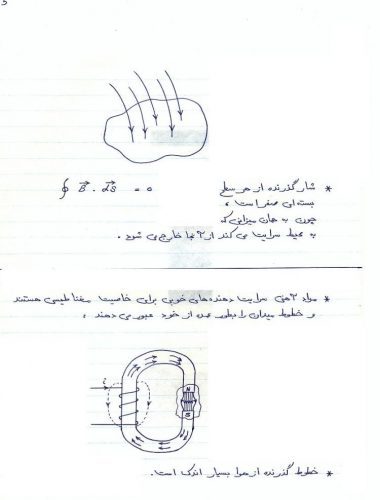 * شار گذرنده از هر سطح
∮ B⃗ . dS⃗ = 0
بسته ای صفر است ،
چون به همان میزانی که
به محیط سرایت می کند از آنجا خارج می شود .
* مواد آهنی سرایت دهنده های خوبی برای خاصیت مغناطیسی هستند
و خطوط میدان را بطور عمده از خود عبور می دهند :
i
N
S
* خطوط گذرنده از هوا بسیار اندک است .